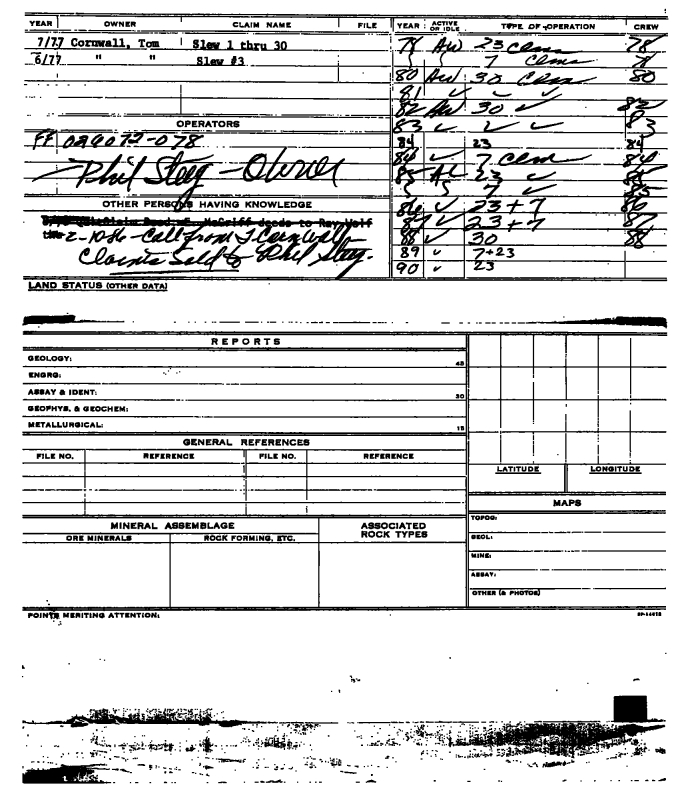 YEAR OWNER CLAIM NAME FILE YEAR ACTIVE OR IDLE TYPE OF OPERATION CREW
7/77 Cornwall, Tom Slew 1 thru 30
6/77 " " Slew #3
78 AW 23 clms 78
7 clms
80 AW 30 clms 80
81 ✓ ✓ ✓
82 AW 30 ✓ 82
83 ✓ ✓ ✓ 83
84 23 84
84 ✓ 7 clms 84
85 23 ✓ 85
7 ✓ 85
86 ✓ 23 + 7 86
87 ✓ 23 + 7 87
88 ✓ 30 88
89 ✓ 7+23
90 ✓ 23
OPERATORS
FF 026072-078
Phil Steeg - Owner
OTHER PERSONS HAVING KNOWLEDGE
2-10-86 - Call from T. Cornwall -
Claims Sold to Phil Steeg.
LAND STATUS (OTHER DATA)
REPORTS
GEOLOGY: 45
ENGRG:
ASSAY & IDENT: 30
GEOPHYS. & GEOCHEM:
METALLURGICAL: 15
GENERAL REFERENCES
FILE NO. REFERENCE FILE NO. REFERENCE
LATITUDE LONGITUDE
MAPS
TOPOG:
GEOL:
MINE:
ASSAY:
OTHER (& PHOTOS)
MINERAL ASSEMBLAGE ASSOCIATED ROCK TYPES
ORE MINERALS ROCK FORMING, ETC.
POINTS MERITING ATTENTION: